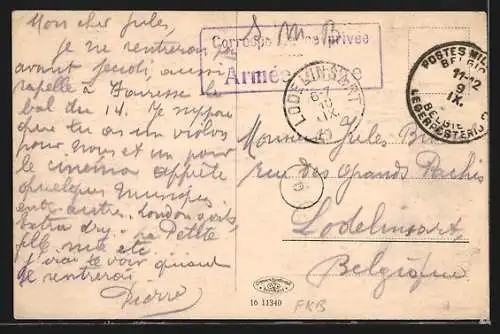 Mon cher Jules,
Je ne rentrerai pas
avant jeudi, aussi
rappelle à
bal du 14. Je suppose
que tu as un violon
pour nous et un pour
le cinéma apprête
quelques musiques
entr'autres. London
extra dry. Petite
fille etc
J'irai te voir quand
je rentrerai
Pierre
S. M. B
Correspondance privée
Armée
LODELINSART
6-7
10
IX
POSTES MIL
BELGIQUE
11-12
9
IX.
BELGIE
LEGERPOSTERIJ
Monsieur Jules
rue des Grands
Lodelinsart
Belgique
16 11340
FKB